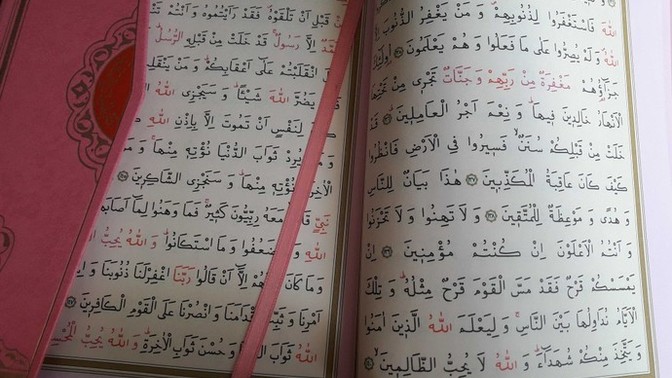 اللّٰهَ فَاسْتَغْفَرُوا لِذُنُوبِهِمْ وَ مَنْ يَغْفِرُ الذُّنُوبَ
اللّٰهُ وَ لَمْ يُصِرُّوا عَلٰى مَا فَعَلُوا وَ هُمْ يَعْلَمُونَ اُولٰٓئِكَ
جَزَٓاؤُ۬هُمْ مَغْفِرَةٌ مِنْ رَبِّهِمْ وَ جَنَّاتٌ تَجْرٖى مِنْ تَحْتِهَا
الْاَنْهَارُ خَالِدٖينَ فٖيهَا وَ نِعْمَ اَجْرُ الْعَامِلٖينَ قَدْ
خَلَتْ مِنْ قَبْلِكُمْ سُنَنٌ فَسٖيرُوا فِي الْاَرْضِ فَانْظُرُوا
كَيْفَ كَانَ عَاقِبَةُ الْمُكَذِّبٖينَ هٰذَا بَيَانٌ لِلنَّاسِ
وَ هُدًى وَ مَوْعِظَةٌ لِلْمُتَّقٖينَ وَ لَا تَهِنُوا وَ لَا تَحْزَنُوا
وَ اَنْتُمُ الْاَعْلَوْنَ اِنْ كُنْتُمْ مُؤْمِنٖينَ اِنْ
يَمْسَسْكُمْ قَرْحٌ فَقَدْ مَسَّ الْقَوْمَ قَرْحٌ مِثْلُهُ وَ تِلْكَ
الْاَيَّامُ نُدَاوِلُهَا بَيْنَ النَّاسِ وَ لِيَعْلَمَ اللّٰهُ الَّذٖينَ اٰمَنُوا
وَ يَتَّخِذَ مِنْكُمْ شُهَدَٓاءَ وَ اللّٰهُ لَا يُحِبُّ الظَّالِمٖينَ
قَبْلِ اَنْ تَلْقَوْهُ فَقَدْ رَاَيْتُمُوهُ وَ اَنْتُمْ
اِلَّا رَسُولٌ قَدْ خَلَتْ مِنْ قَبْلِهِ الرُّسُلُ
انْقَلَبْتُمْ عَلٰٓى اَعْقَابِكُمْ وَ مَنْ يَنْقَلِبْ
يَضُرَّ اللّٰهَ شَيْـًٔا وَ سَيَجْزِى اللّٰهُ
لِنَفْسٍ اَنْ تَمُوتَ اِلَّا بِاِذْنِ اللّٰهِ
يُرِدْ ثَوَابَ الدُّنْيَا نُؤْتِهٖ مِنْهَا وَ مَنْ
نُؤْتِهٖ مِنْهَا وَ سَنَجْزِى الشَّاكِرٖينَ
نَبِيٍّ مَعَهُ رِبِّيُّونَ كَثٖيرٌ فَمَا وَهَنُوا لِمَٓا اَصَابَهُمْ
اللّٰهِ ضَعُفُوا وَ مَا اسْتَكَانُوا وَ اللّٰهُ يُحِبُّ
وَ مَا كَانَ اِلَّٓا اَنْ قَالُوا رَبَّنَا اغْفِرْلَنَا ذُنُوبَنَا وَ
اَمْرِنَا وَ ثَبِّتْ اَقْدَامَنَا وَ انْصُرْنَا عَلَى الْقَوْمِ الْكَافِرٖينَ
اللّٰهُ ثَوَابَ وَ حُسْنَ ثَوَابِ الْاٰخِرَةِ وَ اللّٰهُ يُحِبُّ